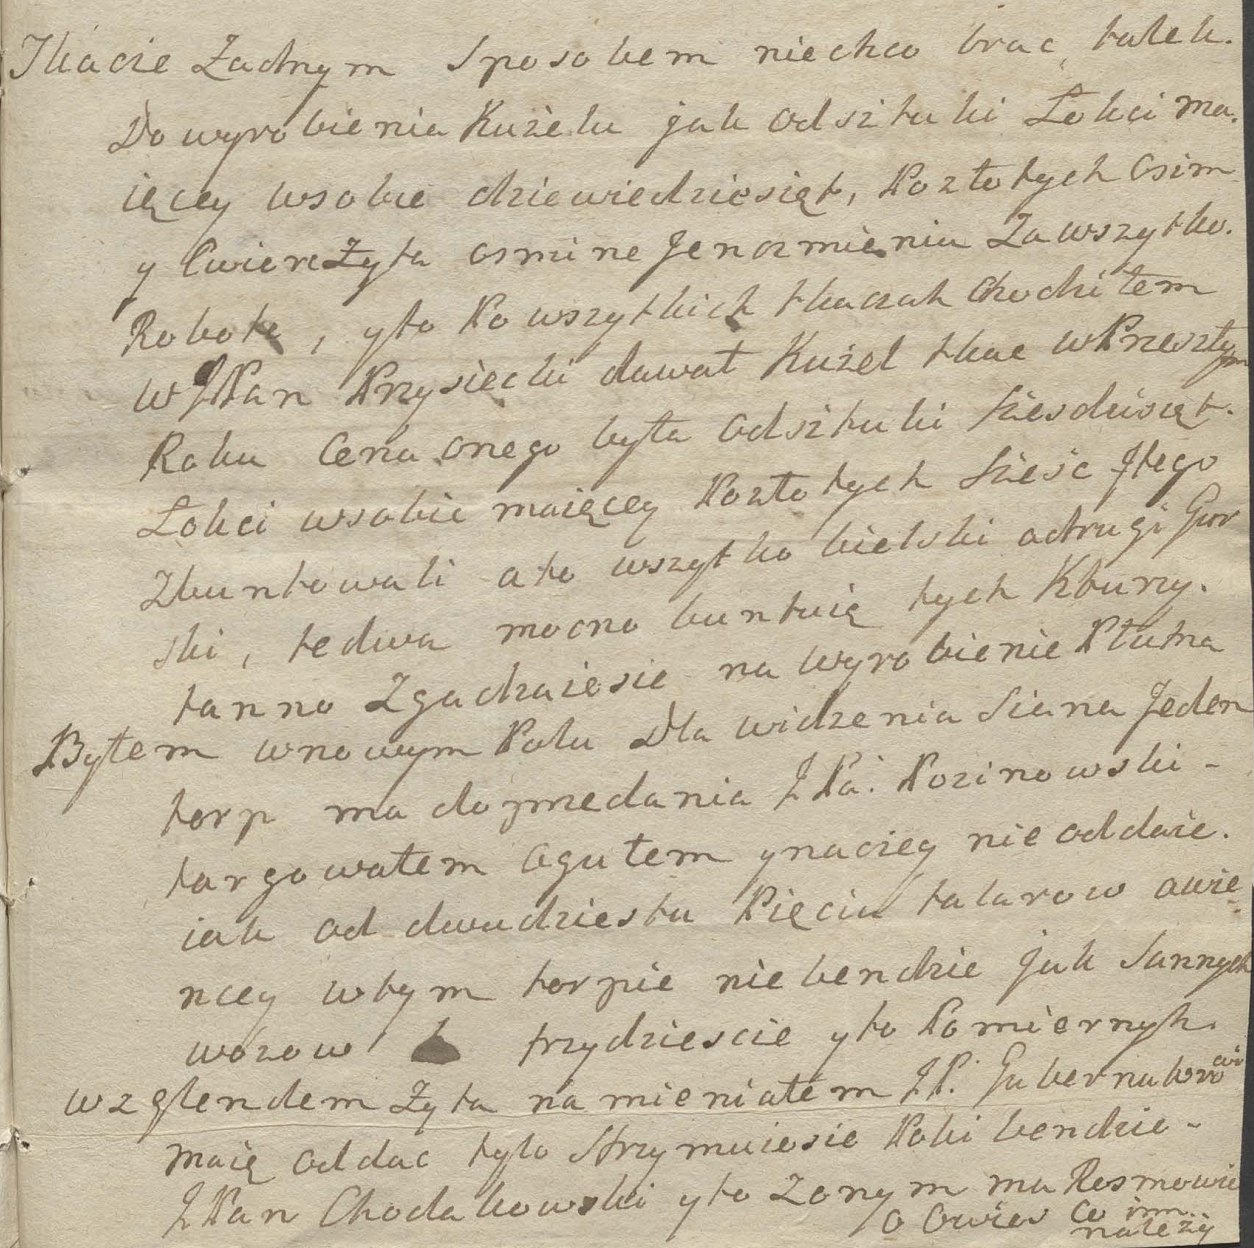 Tkacie Żadnym Sposobem niechco brac tulek.
Do wyrobienia Kużelu jak od sztuki Łokci ma,
iącey wsobie dziewiedziesiąt, Pozłotych Osim
y Cwierc Żyta osmine Jenczmienia Zawszytko.
Robote, yto Po wszytkich tkaczah Chodziłem
WJPan Przysiecki dawał Kużel tkac wPrzeszłym
Roku Cena onego była Odsztuki sziesdzisiąt.
Łokci wsobie maiącey Pozłotych szieśc Jtego
Zbuntowali ato wszytko bielski adrugi Gur
ski, tedwa mocno buntuią tych Ktury.
tanno Zgadzaiesie na wyrobienie Płutna
Byłem wnowym Polu Dla widzenia Siana Jeden
torp ma dozpredania JPa: Pozinowski -
targowałem Ogułem ynaczey nieoddaie.
iak od dwudziestu Pięciu talarow awię
ncey wtym torpie niebendzie jak Sannych
wozow trzydziescie yto Pomiernych.
wzglendem Żyta namieniałem JP: Gubernatorowi
maią oddac tylo Strzymuiesie Poki bendzie -
JPan Chodakowski yto Zonym ma Rosmowie
o Owies co im
należy